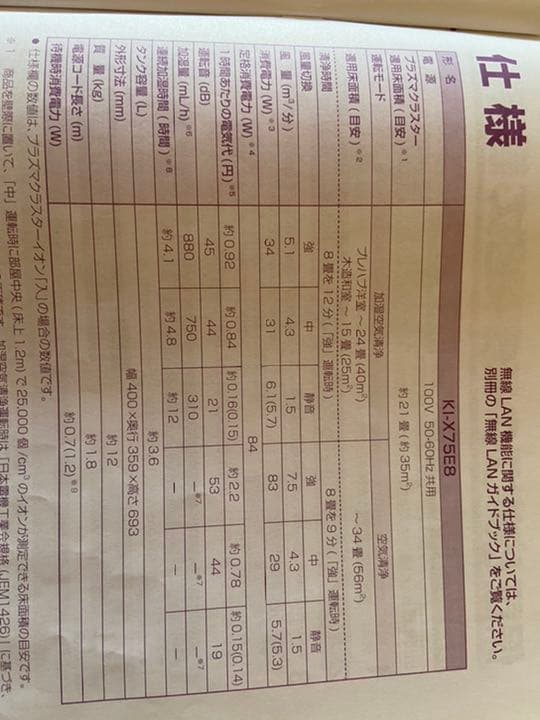 仕 様
無線 LAN 機能に関する仕様については、
別冊の「無線 LAN ガイドブック」をご覧ください。
形 名 KI-X75E8
電 源 100V 50-60Hz 共用
プラズマクラスター適用床面積(目安)※1 約 21 畳(約 35m²)
運転モード 加湿空気清浄 空気清浄
適用床面積(目安)※2 プレハブ洋室 ~ 24 畳(40m²) ~ 34 畳(56m²)
木造和室 ~ 15 畳(25m²)
清浄時間 8 畳を 12 分(「強」運転時) 8 畳を 9 分(「強」運転時)
風量切換 強 中 静音 強 中 静音
風 量(m³/分) 5.1 4.3 1.5 7.5 4.3 1.5
消費電力(W)※3 34 31 6.1(5.7) 83 29 5.7(5.3)
定格消費電力(W)※4 84
1時間あたりの電気代(円)※5 約 0.92 約 0.84 約 0.16(0.15) 約 2.2 約 0.78 約 0.15(0.14)
運転音(dB) 45 44 21 53 44 19
加湿量(mL/h)※6 880 750 310 —※7 —※7 —※7
連続加湿時間(時間)※8 約 4.1 約 4.8 約 12 — — —
タンク容量(L) 約 3.6
外形寸法(mm) 幅 400 × 奥行 359 × 高さ 693
質 量(kg) 約 12
電源コード長さ(m) 約 1.8
待機時消費電力(W) 約 0.7(1.2)※9
● 仕様欄の数値は、プラズマクラスターイオン「入」の場合の数値です。
※1 商品を壁際に置いて、「中」運転時に部屋中央(床上 1.2m)で 25,000 個/cm³ のイオンが測定できる床面積の目安です。
加湿空気清浄運転時は「日本電機工業会規格(JEM1426)」に基づき、